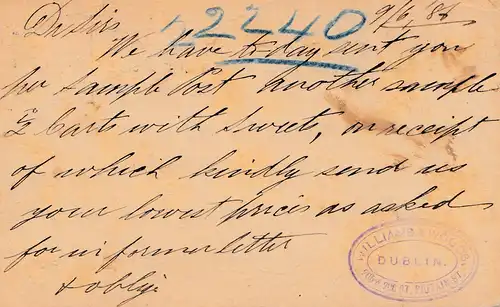 22440
9/6/86
Dr Sirs
We have to day sent you
per Sample Post another sample
Carts with Sweets, on receipt
of which kindly send us
your lowest prices as asked
for in former letter
& oblige
WILLIAMS &
DUBLIN.